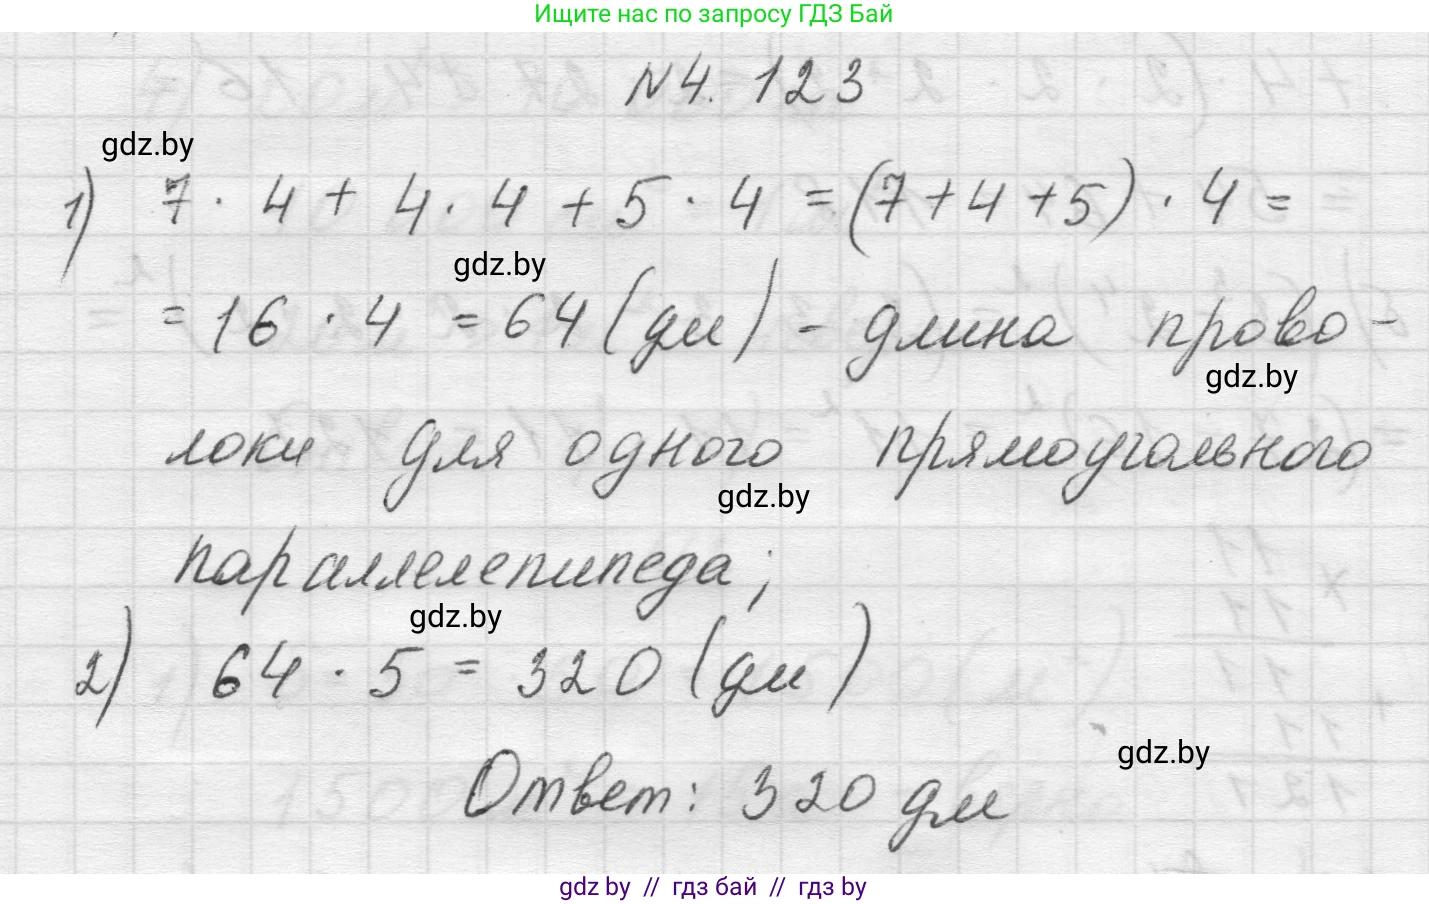 Ищите нас по запросу ГДЗ Бай
№4.123
gdz.by
1) 7 · 4 + 4 · 4 + 5 · 4 = (7+4+5) · 4 =
gdz.by
= 16 · 4 = 64 (дм) - длина прово-
gdz.by
локи для одного прямоугольного
gdz.by
параллелепипеда;
gdz.by
2) 64 · 5 = 320 (дм)
gdz.by
Ответ: 320 дм
gdz by // гдз бай // гдз by